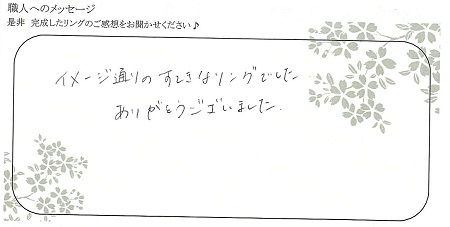 職人へのメッセージ
是非 完成したリングのご感想をお聞かせください♪
イメージ通りのすてきなリングでした
ありがとうございました.